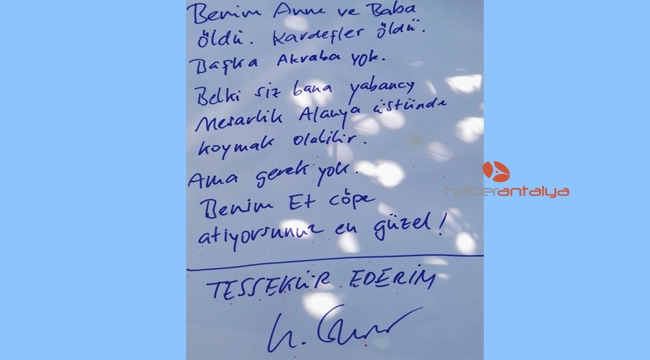 Benim Anne ve Baba
öldü. Kardeşler öldü.
Başka Akraba yok.
Belki siz bana yabancy
Mesarlik Alanya üstünde
koymak olabilir.
Ama gerek yok.
Benim Et cöpe
atiyorsunuz en güzel!
TESSEKÜR EDERIM
haberantalya